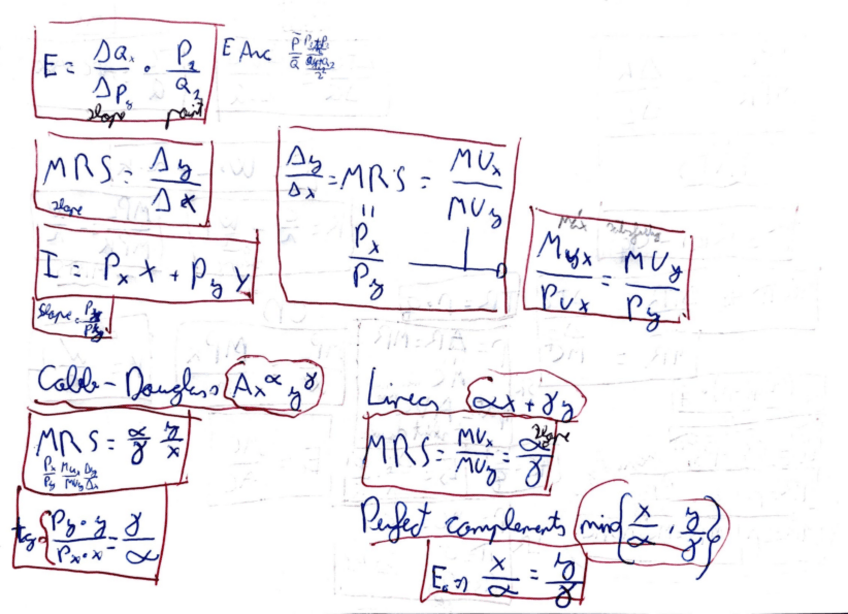 E = ΔQx/ΔPy · P1/Q1 E Arc P̄/Q̄
slope point
MRS = Δy/Δx
slope
Δy/Δx = MRS = MUx/MUy
=
Px/Py
I = Px x + Py y
slope =
= MUy/Py
Cobb-Douglass Ax^α y^γ
MRS = α/γ y/x
Px/Py MUx/MUy Δy/Δx
Py·y/Px·x = γ/α
Linear αx + γy
MRS = MUx/MUy = α/γ
slope
Perfect complements min{x/α, y/γ}
x/α = y/γ